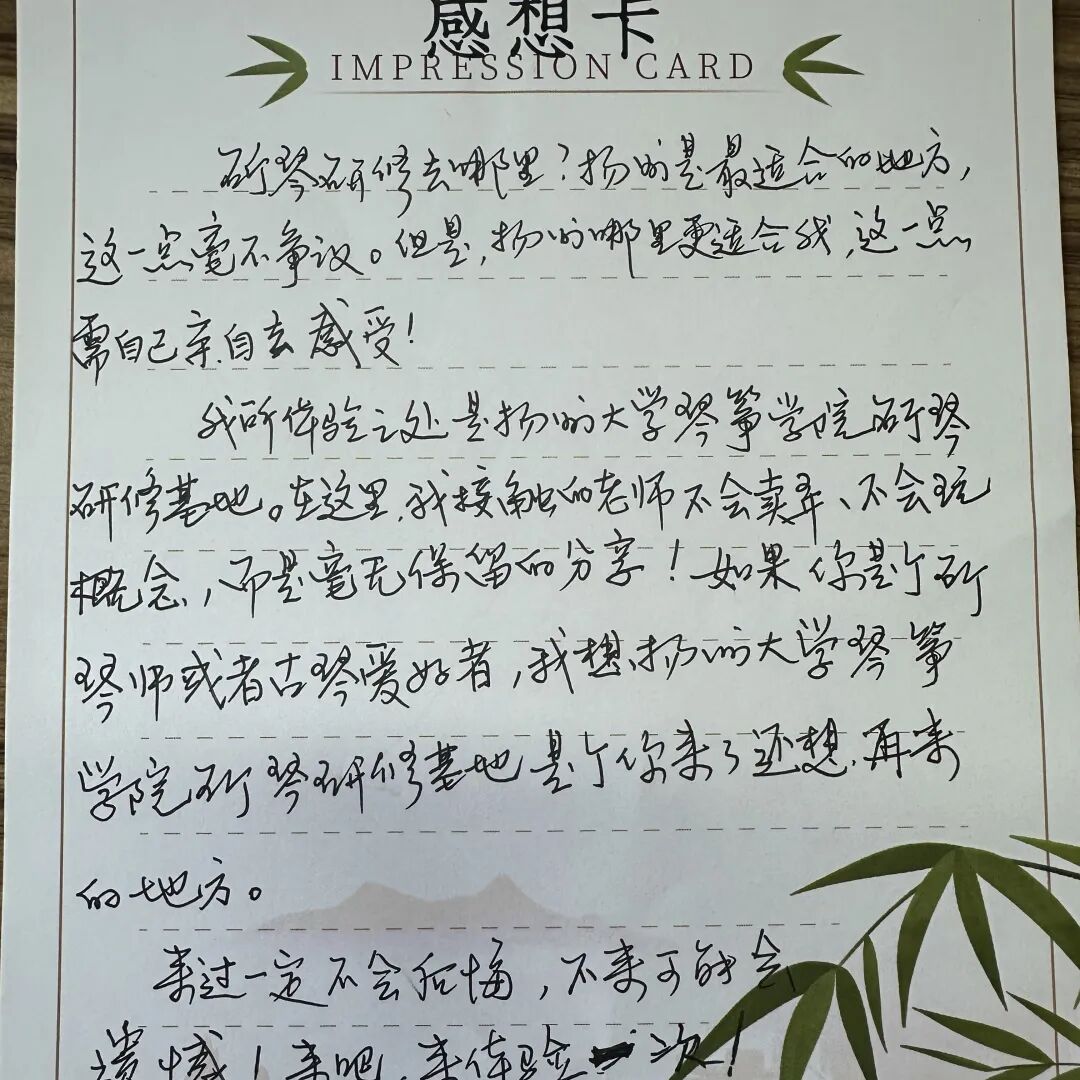 感想卡
IMPRESSION CARD
斫琴研修去哪里？扬州是最适合的地方，
这一点毫不争议。但是，扬州哪里更适合我，这一点
需自己亲自去感受！
我所体验之处是扬州大学琴筝学院斫琴
研修基地。在这里，我接触的老师不会卖弄、不会玩
概念，而是毫无保留的分享！如果你是个斫
琴师或者古琴爱好者，我想扬州大学琴筝
学院斫琴研修基地是个你来了还想再来
的地方。
来过一定不会后悔，不来可能会
遗憾！来吧，来体验一次！